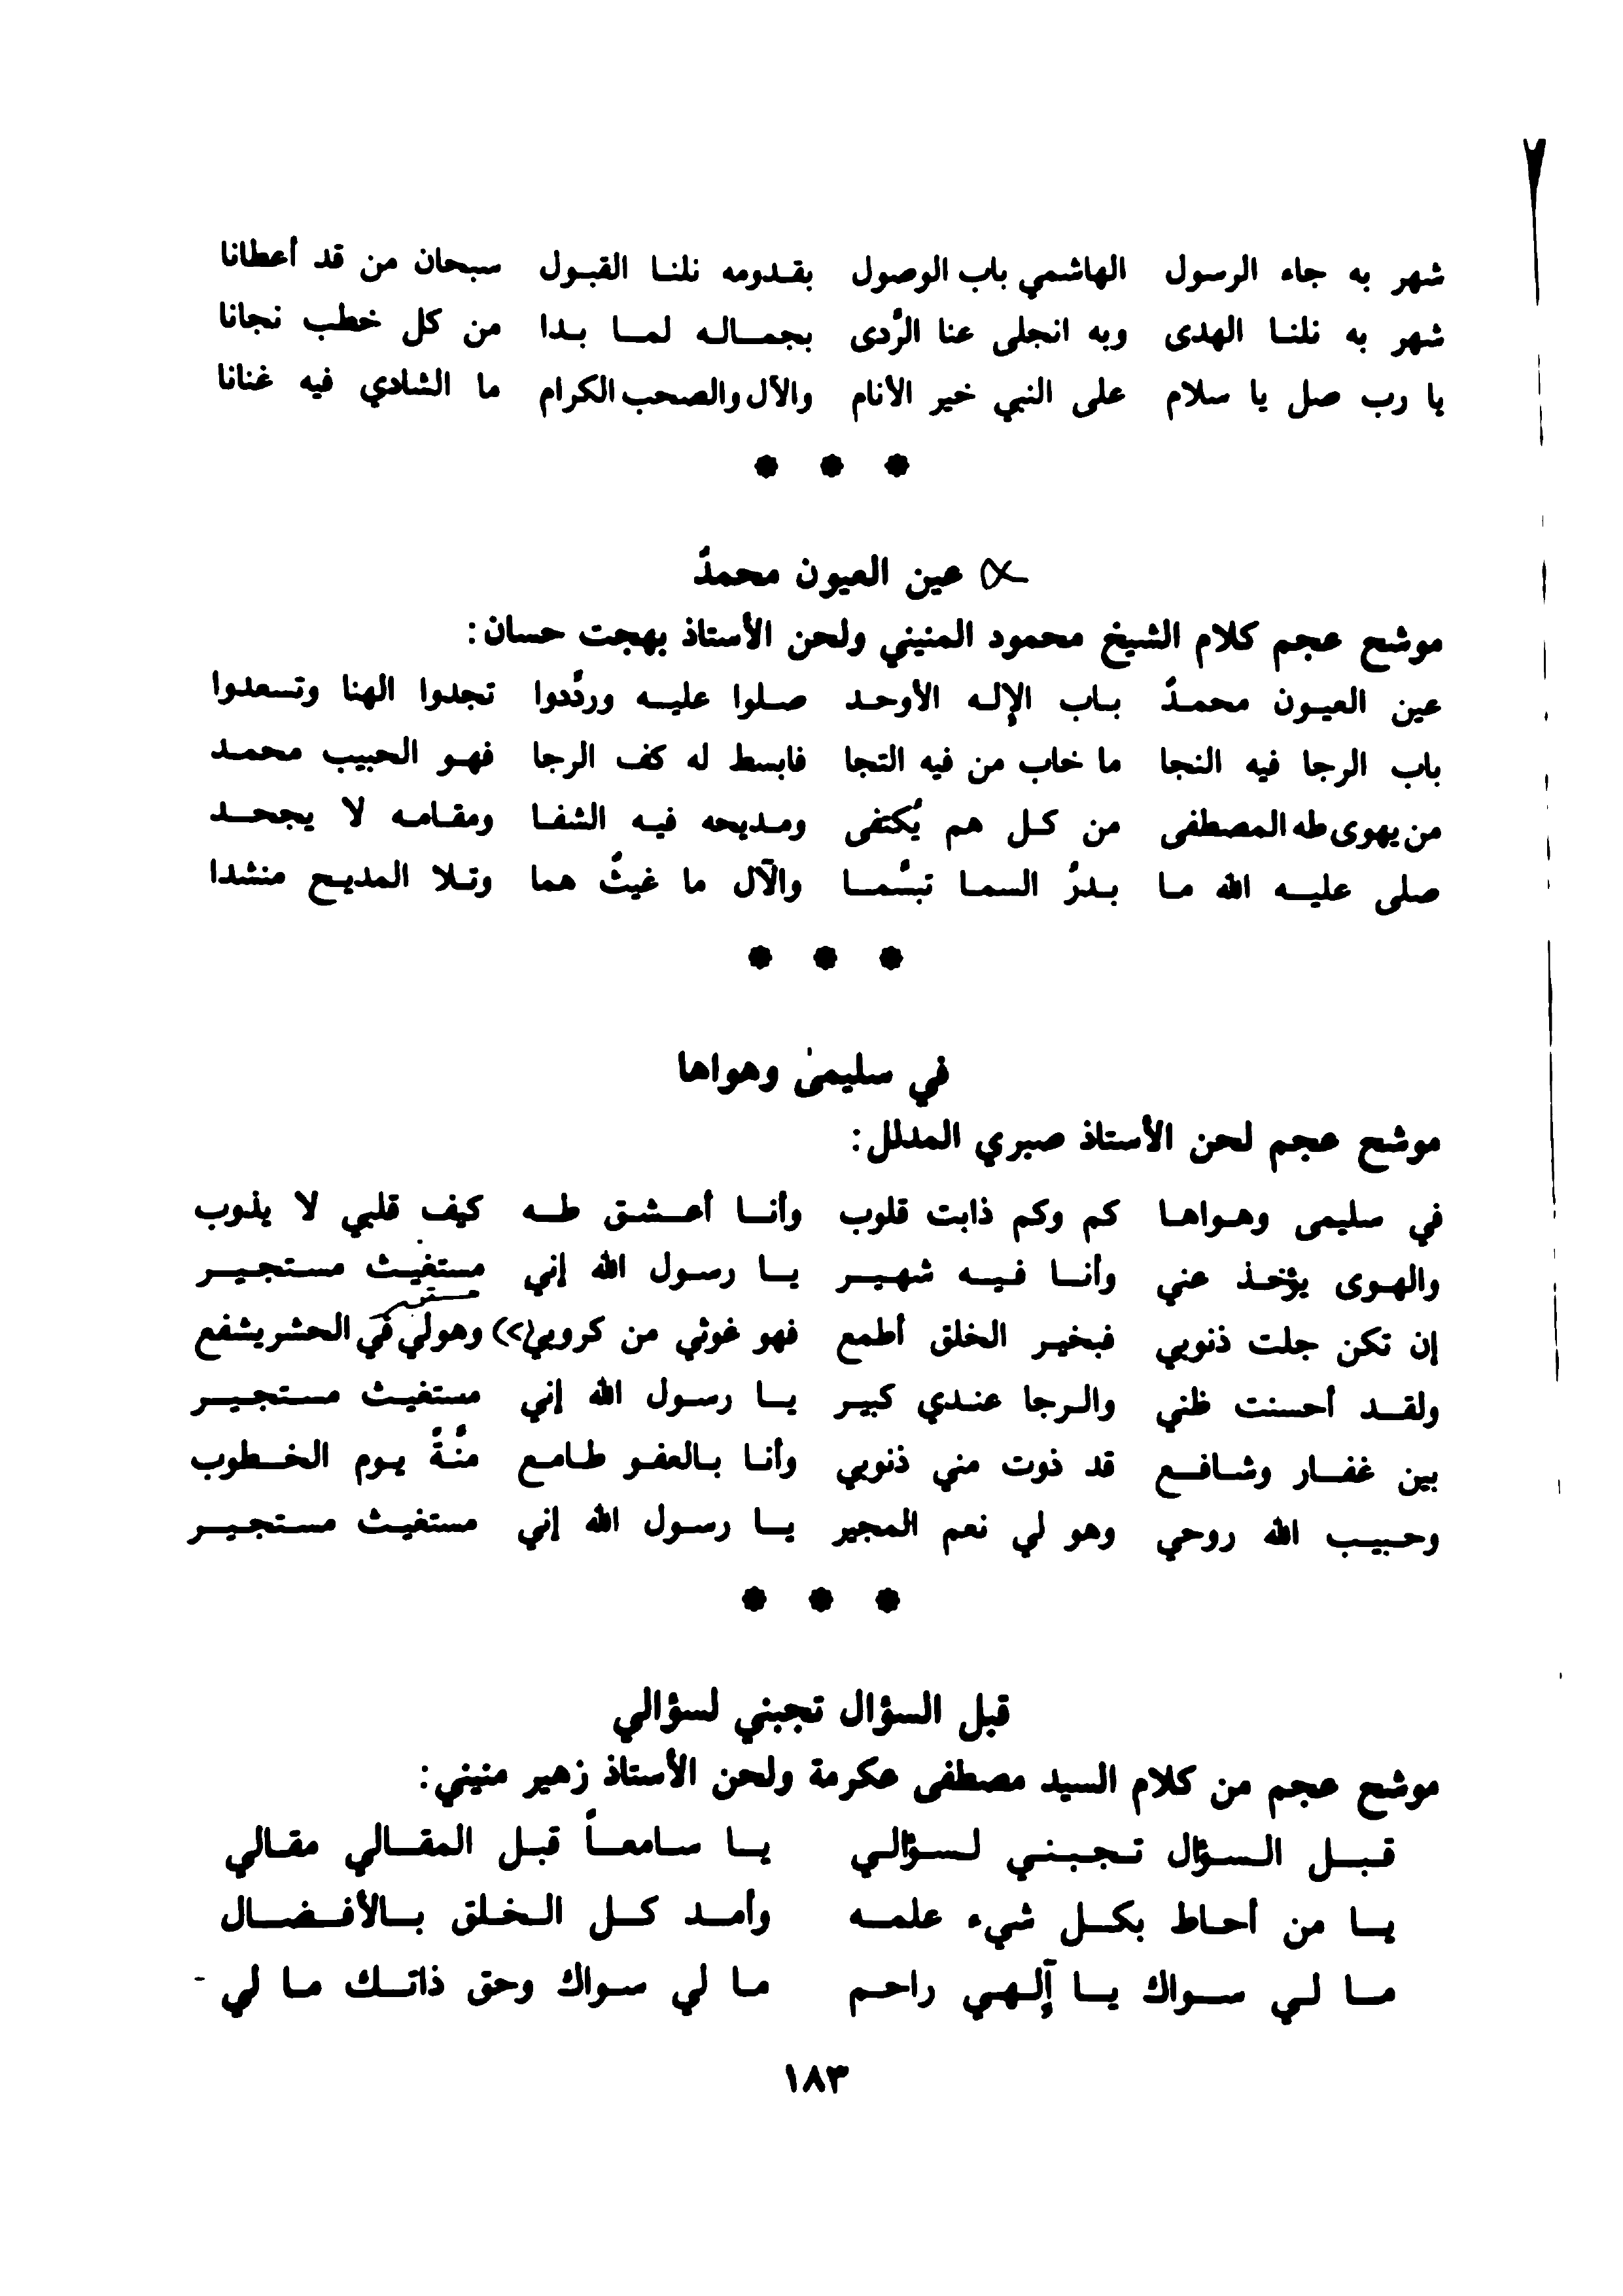 شهر به جاء الرسول الهاشمي باب الوصول بقدومه نلنا القبول سبحان من قد أعطانا
شهر به نلنا الهدى وبه انجلى عنا الرَّدى بجماله لما بدا من كل خطب نجانا
يا رب صل يا سلام على النبي خير الأنام والآل والصحب الكرام ما الشادي فيه غنانا
* * *
عين العيون محمدٌ
موشح عجم كلام الشيخ محمود المنيني ولحن الأستاذ بهجت حسان:
عين العيون محمدٌ باب الإله الأوحد صلوا عليه وردِّدوا تجدوا الهنا وتسعدوا
باب الرجا فيه النجا ما خاب من فيه التجا فابسط له كف الرجا فهو الحبيب محمد
من يهوى طه المصطفى من كل هم يُكتفى ومديحه فيه الشفا ومقامه لا يجحد
صلى عليه الله ما بدرُ السما تبسَّما والآل ما غيثٌ هما وتلا المديح منشدا
* * *
في سليمىٰ وهواها
موشح عجم لحن الأستاذ صبري المدلل:
في سليمى وهواها كم وكم ذابت قلوب وأنا أعشق طه كيف قلبي لا يذوب
والهوى يؤخذ عني وأنا فيه شهير يا رسول الله إني مستغيث مستجير
إن تكن جلت ذنوبي فبخير الخلق أطمع فهو غوثي من كروبي وهو لي في الحشر يشفع
ولقد أحسنت ظني والرجا عندي كبير يا رسول الله إني مستغيث مستجير
بين غفار وشافع قد ذوت مني ذنوبي وأنا بالعفو طامع منَّةً يوم الخطوب
وحبيب الله روحي وهو لي نعم المجير يا رسول الله إني مستغيث مستجير
* * *
قبل السؤال تجبني لسؤالي
موشح عجم من كلام السيد مصطفى عكرمة ولحن الأستاذ زهير منيني:
قبل السؤال تجبني لسؤالي يا سامعاً قبل المقالي مقالي
يا من أحاط بكل شيء علمه وأمد كل الخلق بالأفضال
ما لي سواك يا إلٓهي راحم ما لي سواك وحق ذاتك ما لي
١٨٣